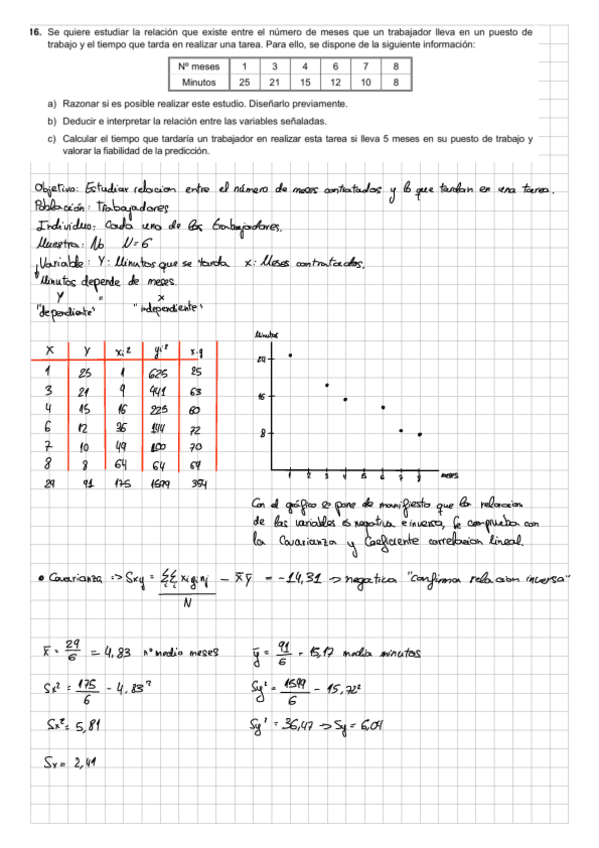 16. Se quiere estudiar la relación que existe entre el número de meses que un trabajador lleva en un puesto de
trabajo y el tiempo que tarda en realizar una tarea. Para ello, se dispone de la siguiente información:
Nº meses 1 3 4 6 7 8
Minutos 25 21 15 12 10 8
a) Razonar si es posible realizar este estudio. Diseñarlo previamente.
b) Deducir e interpretar la relación entre las variables señaladas.
c) Calcular el tiempo que tardaría un trabajador en realizar esta tarea si lleva 5 meses en su puesto de trabajo y
valorar la fiabilidad de la predicción.
Objetivo: Estudiar relacion entre el número de meses contratados y lo que tardan en una tarea.
Población: Trabajadores
Individuo: Cada uno de los trabajadores.
Muestra: No N=6
Variable: Y: Minutos que se tarda x: Meses contratados.
Minutos depende de meses.
Y x
"dependiente" "independiente"
X Y xi² yi² x.y
1 25 1 625 25
3 21 9 441 63
4 15 16 225 60
6 12 36 144 72
7 10 49 100 70
8 8 64 64 64
29 91 175 1599 354
Minutos
24
16
8
1 2 3 4 5 6 7 8 meses
Con el gráfico se pone de manifiesto que la relacion
de las variables es negativa e inversa, se comprueba con
la Covarianza y Coeficiente correlacion lineal.
• Covarianza => Sxy = ΣΣ xi yj nij / N - x̄ȳ = -14,31 → negativa "Confirma relacion inversa"
x̄ = 29/6 = 4,83 nº medio meses
ȳ = 91/6 = 15,17 media minutos
Sx² = 175/6 - 4,83²
Sy² = 1599/6 - 15,72²
Sx² = 5,81
Sy² = 36,47 → Sy = 6,04
Sx = 2,41